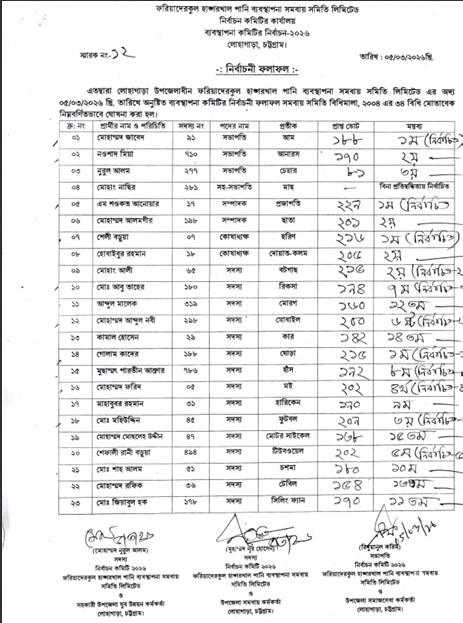 ফরিয়াদেরকুল হাঙ্গরখাল পানি ব্যবস্থাপনা সমবায় সমিতি লিমিটেড
নির্বাচন কমিটির কার্যালয়
ব্যবস্থাপনা কমিটির নির্বাচন-২০২৬
লোহাগাড়া, চট্টগ্রাম।
স্মারক নং-১২ তারিখ : ০৫/০৩/২০২৬খ্রি.
-: নির্বাচনী ফলাফল :-
এতদ্বারা লোহাগাড়া উপজেলাধীন ফরিয়াদেরকুল হাঙ্গরখাল পানি ব্যবস্থাপনা সমবায় সমিতি লিমিটেড এর অদ্য
০৫/০৩/২০২৬ খ্রি. তারিখে অনুষ্ঠিত ব্যবস্থাপনা কমিটির নির্বাচনী ফলাফল সমবায় সমিতি বিধিমালা, ২০০৪ এর ৩৪ বিধি মোতাবেক
নিম্নবর্ণিতভাবে ঘোষনা করা হল।
ক্র: নং প্রার্থীর নাম ও পরিচিতি সদস্য নং পদের নাম প্রতীক প্রাপ্ত ভোট মন্তব্য
০১ মোহাম্মদ জাবেদ ৯১ সভাপতি আম ১৮৮ ১ম (নির্বাচিত)
০২ নওশাদ মিয়া ৭১০ সভাপতি আনারস ১৭০ ২য়
০৩ নুরুল আলম ২৭৭ সভাপতি চেয়ার ৮১ ৩য়
০৪ মোহাং নাছির ২৮১ সহ-সভাপতি মাছ - বিনা প্রতিদ্বন্দ্বিতায় নির্বাচিত
০৫ এম শওকত আনোয়ার ১৭ সম্পাদক প্রজাপতি ২২৭ ১ম (নির্বাচিত)
০৬ মোহাম্মদ আলমগীর ১৯৮ সম্পাদক ছাতা ২০১ ২য়
০৭ শেলী বড়ুয়া ০৭ কোষাধ্যক্ষ হরিণ ২১৬ ১ম (নির্বাচিত)
০৮ হোবাইবুর রহমান ১৮ কোষাধ্যক্ষ দোয়াত-কলম ২০৫ ২য়
০৯ মোহাং আলী ৬৫ সদস্য বটগাছ ২১৫ ২য় (নির্বাচিত)
১০ মোঃ আবু তাহের ১৮০ সদস্য রিকসা ১৭৪ ৭ম (নির্বাচিত)
১১ আব্দুল মালেক ৩১৯ সদস্য মোরগ ১৬০ ১২তম
১২ মোহাম্মদ আব্দুল নবী ২৯৮ সদস্য মোবাইল ২০০ ৬ষ্ঠ (নির্বাচিত)
১৩ কামাল হোসেন ২৯ সদস্য কার ১৪২ ১৪তম
১৪ গোলাম কাদের ১৮৮ সদস্য ঘোড়া ২১৫ ১ম (নির্বাচিত)
১৫ মুছাম্মৎ পারভীন আক্তার ৭৮৬ সদস্য হাঁস ১৭২ ৮ম (নির্বাচিত)
১৬ মোহাম্মদ ফরিদ ০৫ সদস্য মই ২০২ ৪র্থ (নির্বাচিত)
১৭ মাহাবুবর রহমান ৩১ সদস্য হারিকেন ১৭০ ৯ম
১৮ মোঃ মহিউদ্দিন ৪৫ সদস্য ফুটবল ২০৭ ৩য় (নির্বাচিত)
১৯ মোহাম্মদ মোছলেহ উদ্দীন ৪৭ সদস্য মোটর সাইকেল ১৩৮ ১৫তম
২০ শেফালী রানী বড়ুয়া ৪৯৪ সদস্য টিউবওয়েল ২০২ ৫ম (নির্বাচিত)
২১ মোঃ শাহ আলম ৫১ সদস্য চশমা ১৮০ ১০ম
২২ মোহাম্মদ রফিক ৩৬ সদস্য টেবিল ১৫৪ ১৩তম
২৩ মোঃ জিয়াবুল হক ১৭৮ সদস্য সিলিং ফ্যান ১৭০ ১১তম
(মোহাম্মদ নুরুল আলম) (মুহাম্মদ নূর হোসেন) (রিদুয়ানুল করিম)
সদস্য সদস্য সভাপতি
নির্বাচন কমিটি ২০২৬ নির্বাচন কমিটি ২০২৬ নির্বাচন কমিটি ২০২৬
ফরিয়াদেরকুল হাঙ্গরখাল পানি ব্যবস্থাপনা সমবায় ফরিয়াদেরকুল হাঙ্গরখাল পানি ব্যবস্থাপনা সমবায় ফরিয়াদেরকুল হাঙ্গরখাল পানি ব্যবস্থাপনা সমবায়
সমিতি লিমিটেড সমিতি লিমিটেড সমিতি লিমিটেড
ও ও ও
সহকারী উপজেলা যুব উন্নয়ন কর্মকর্তা উপজেলা সমবায় কর্মকর্তা উপজেলা সমাজসেবা কর্মকর্তা
লোহাগাড়া, চট্টগ্রাম। লোহাগাড়া, চট্টগ্রাম। লোহাগাড়া, চট্টগ্রাম।